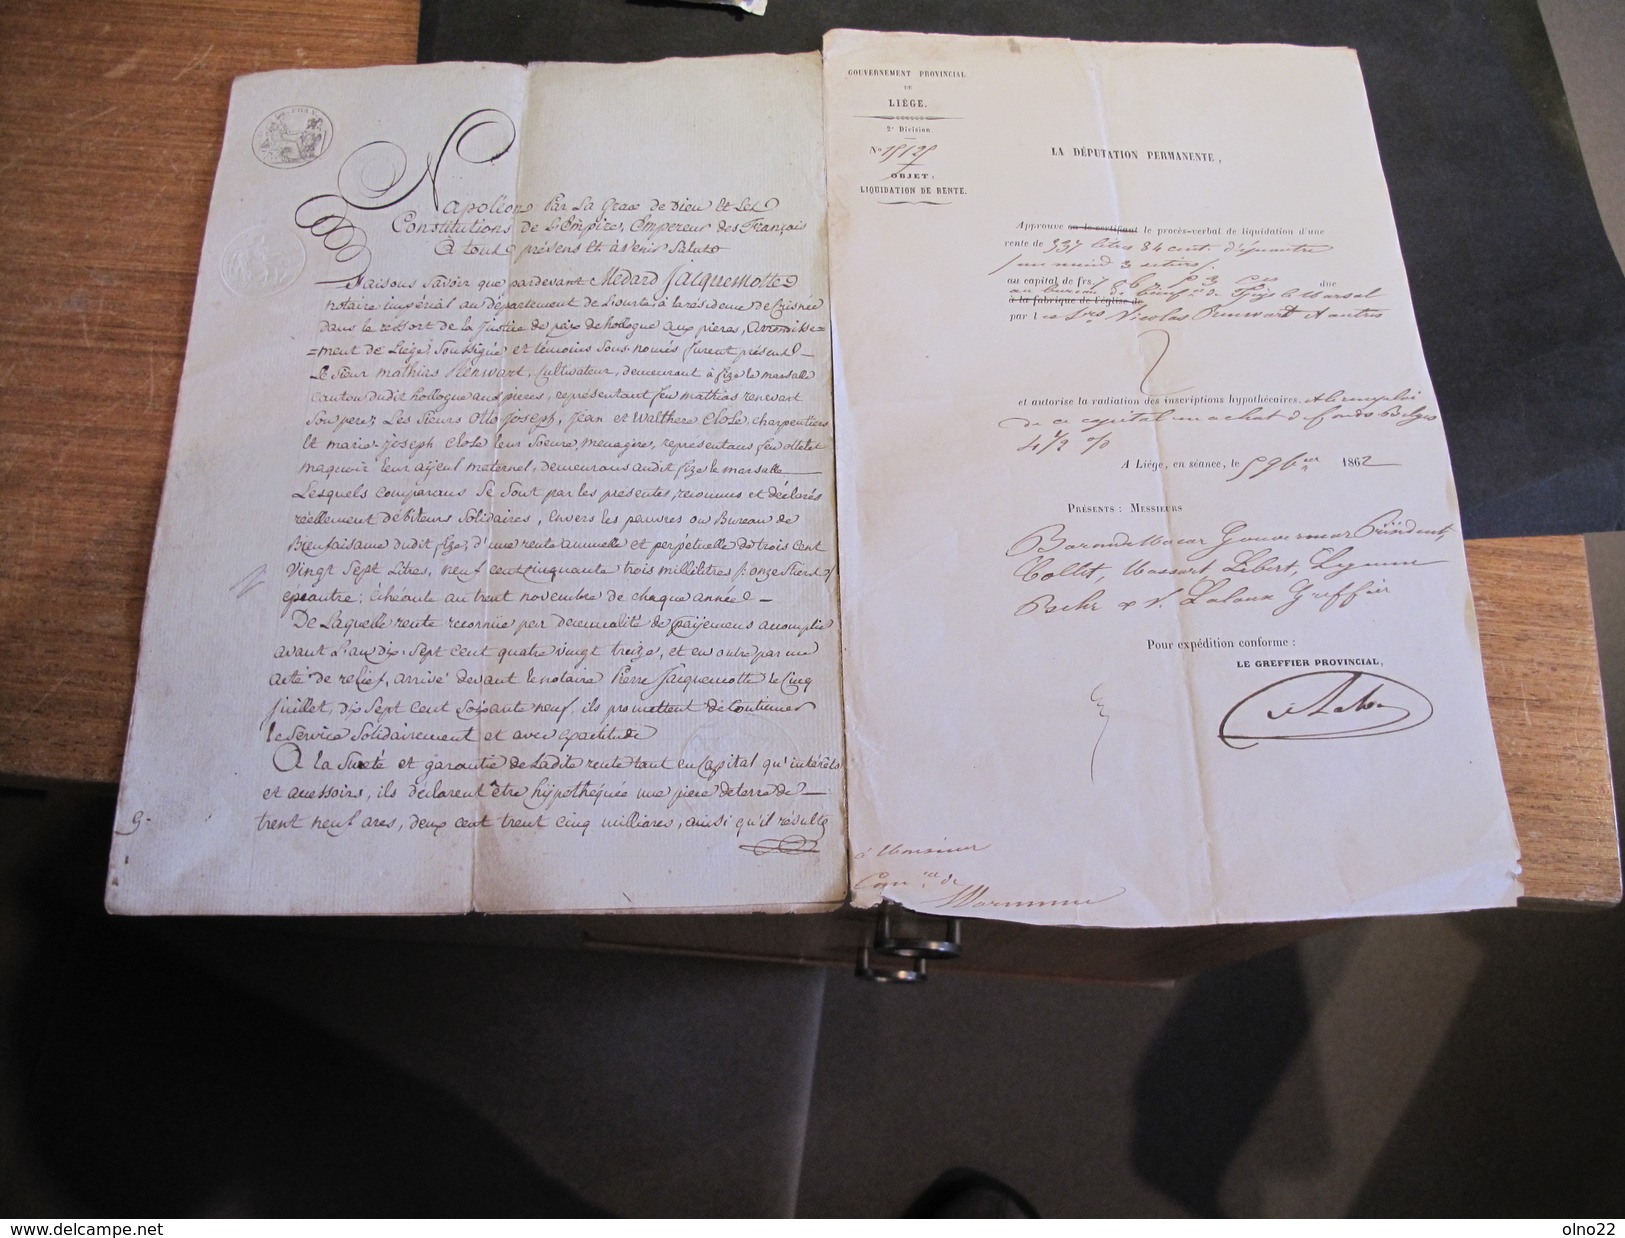 Napoléon Par La Grace de Dieu et Les
Constitutions de L'Empire, Empereur des Français
A tous présens et à venir Salut
Faisons Savoir que pardevant Médard Jacquemotte
notaire impérial au département de L'ourte, à la résidence de Crisnée
dans le ressort de la Justice de paix de hollogne aux pierres, arrondisse=
=ment de Liège, Soussigné et témoins Sous-només furent présens
Le Sieur mathias Renwart, Cultivateur, demeurant à fize le marsalle
canton dudit hollogne aux pierres, représentant feu mathias renwart
Son pere; Les Sieurs Otto Joseph, Jean et Walthere Close, charpentiers
Et marie-Joseph Close leur Soeur, menagere, représentans feu
maquoir leur ayeul maternel, demeurans audit fize le marsalle
Lesquels comparans Se Sont par les présentes, reconnus et déclarés
réellement débiteurs Solidaires, Envers les pauvres ou Bureau de
Bienfaisance dudit fize, d'une rente annuelle et perpétuelle de trois cent
Vingt Sept Litres, neuf cent cinquante trois millilitres
epeautre; échéante au trent novembre de chaque année
De Laquelle rente reconnue par de payemens accomplis
avant L'an dix-Sept cent quatre vingt treize, et en outre par un
acte de relief, arrivé devant le notaire Pierre Jacquemotte le Cinq
juillet, dix Sept cent Soixante neuf, ils promettent de Continuer
le Service Solidairement et avec exactitude
A la Sureté et garantie de Ladite rente tant en Capital qu'intérêts
et accessoirs, ils déclarent être hypothéquée une piece de terre de
trent neuf ares, deux cent trent cinq milliares, ainsi qu'il résulte
GOUVERNEMENT PROVINCIAL
DE
LIÉGE.
2e Division.
No 15125
OBJET:
LIQUIDATION DE RENTE.
LA DÉPUTATION PERMANENTE,
Approuve en le certifiant le procès-verbal de liquidation d'une
rente de 337 litres 84 cent. d'épeautre
/ un muid 3 setiers /.
au capital de frs due
au bureau de bienfce de Fize le Marsal
à la fabrique de l'église de
par les Srs Nicolas Renwart & autres
et autorise la radiation des inscriptions hypothécaires, & le remploi
de ce capital en achat de fonds Belges
4 1/2 %
A Liége, en séance, le 5 9bre 1862
PRÉSENTS: MESSIEURS
Baron de Macar Gouverneur Président,
Collet, Massart, Libert,
V. Laloux Greffier
Pour expédition conforme:
LE GREFFIER PROVINCIAL,
à Monsieur
Comre de
Waremme
www.delcampe.net
olno22